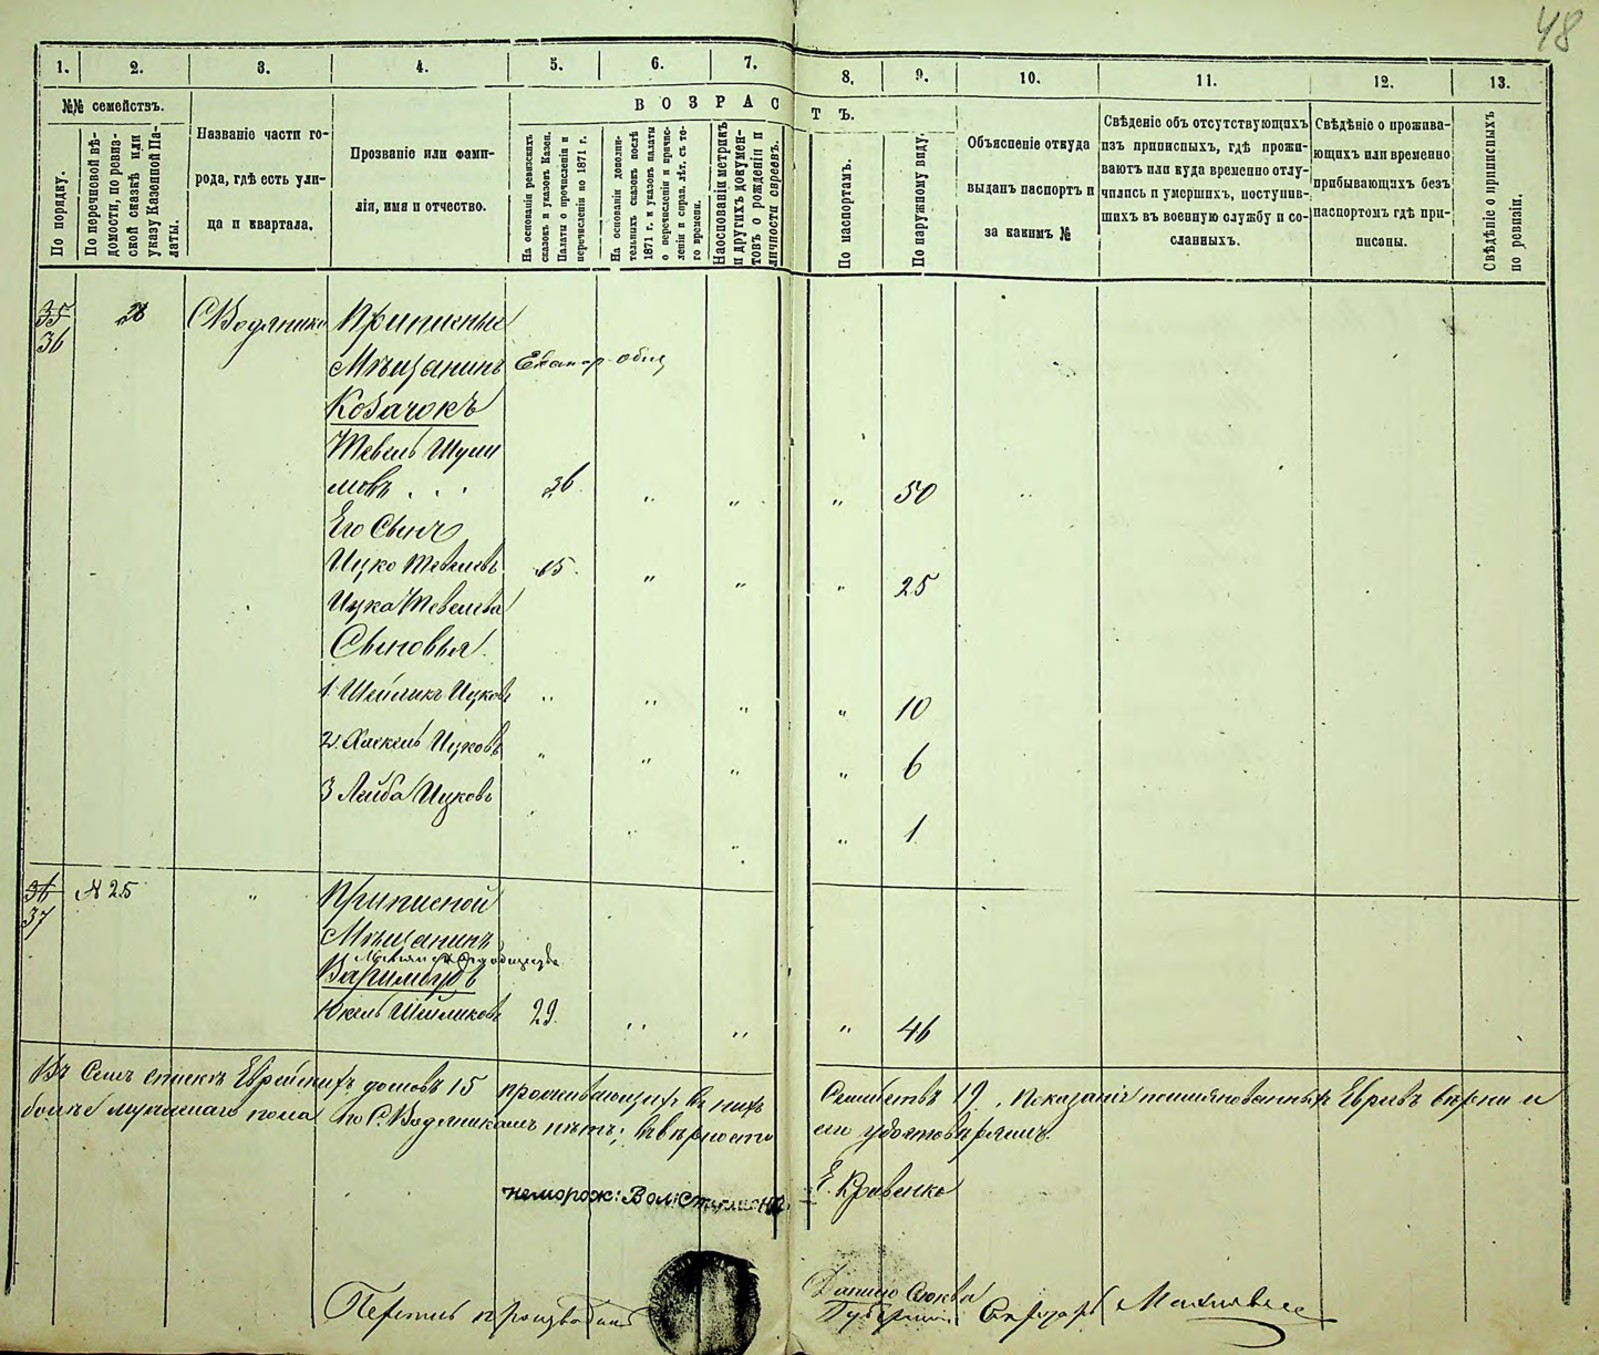 48
1. 2. 3. 4. 5. 6. 7. 8. 9. 10. 11. 12. 13.
№№ семействъ.
По порядку.
По перечневой вѣ-
домости, по ревиз-
ской сказкѣ или
указу Казенной Па-
латы.
Названіе части го-
рода, гдѣ есть ули-
ца и квартала.
Прозваніе или фами-
лія, имя и отчество.
ВОЗРАСТЪ.
На основаніи ревизскихъ
сказокъ и указовъ Казен.
Палаты о причисленіи и
перечисленіи по 1871 г.
На основаніи дополни-
тельныхъ сказокъ послѣ
1871 г. и указовъ палаты
о перечисленіи и причис-
леніи и справ. лѣт. съ то-
го времени.
На основаніи метрикъ
и другихъ докумен-
товъ о рожденіи и
личности евреевъ.
По паспортамъ.
По наружному виду.
Объясненіе откуда
выданъ паспортъ и
за какимъ №
Сведеніе объ отсутствующихъ
изъ приписныхъ, гдѣ прожи-
ваютъ или куда временно отлу-
чились и умершихъ, поступив-
шихъ въ военную службу и со-
сланныхъ.
Свѣдѣніе о прожива-
ющихъ или временно
прибывающихъ безъ
паспортомъ гдѣ при-
писаны.
Свѣдѣніе о приписныхъ
по ревизіи.
35 28 С Водяники Приписные
36
Мѣщанинъ Екатер. общ
Козачокъ
Тевель Шули
мовъ . . . 36 „ „ „ 50
Его Сынъ
Ицко Тевелевъ 15 „ „ „ 25
Ицка Тевелева
Сыновья
1 Шейликъ Ицковъ „ „ „ „ 10
2. Хаскель Ицковъ „ „ „ „ 6
3 Лейба Ицковъ „ „ „ 1
36 № 25 „ Приписной
37
Мѣщанинъ
Юкель Шейликовъ 29. „ „ „ 46
Въ Семъ спискѣ Еврейскихъ домовъ 15 проживающихъ въ нихъ Семействъ 19. Показаніи поимянованныхъ Евреевъ вѣрны и
болѣе мужескаго пола по С. Водяникамъ нѣтъ; въ вѣрности сего удостовѣряемъ.
неморож: Вол: Старшина Е. Кравенко
Перепись производилъ
Губерніи Секретарь